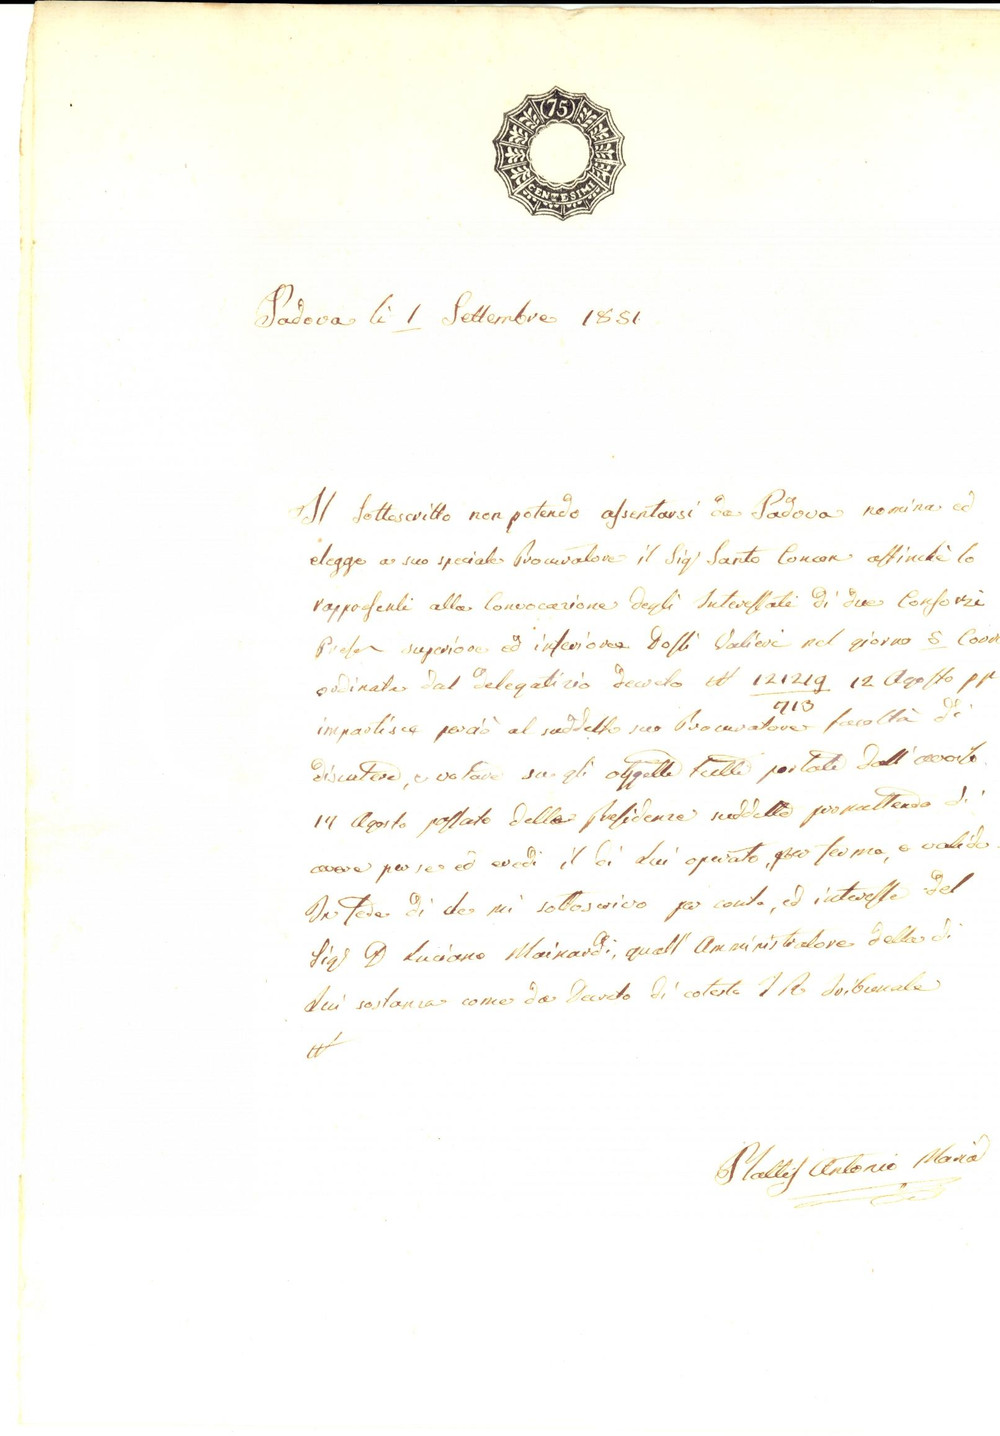 75
CENTESIMI
Padova li 1 Settembre 1851
Il Sottoscritto non potendo assentarsi da Padova nomina ed
elegge a suo speciale Procuratore il Sigr Santo Concon affinchè lo
rappresenti alla Convocazione degli Interessati di due Consorzi
superiore ed inferiore Dossi Valieri nel giorno 5 Corre
ordinata dal delegatizio decreto N 12121g/713 12 Agosto pp
impartisce perciò al suddetto suo Procuratore facoltà di
discutere, e votare su gli oggetti tutti portati dall'avviso
14 Agosto passato della Presidenza suddetta promettendo di
avere per se ed eredi il di Lui operato, per fermo, e valido
In fede di che mi sottoscrivo per conto, ed interesse del
Sigr D Luciano Mainardi, quall'Amministratore della di
Lui sostanza come da Decreto di cotesto I R Tribunale
N
Antonio Maria